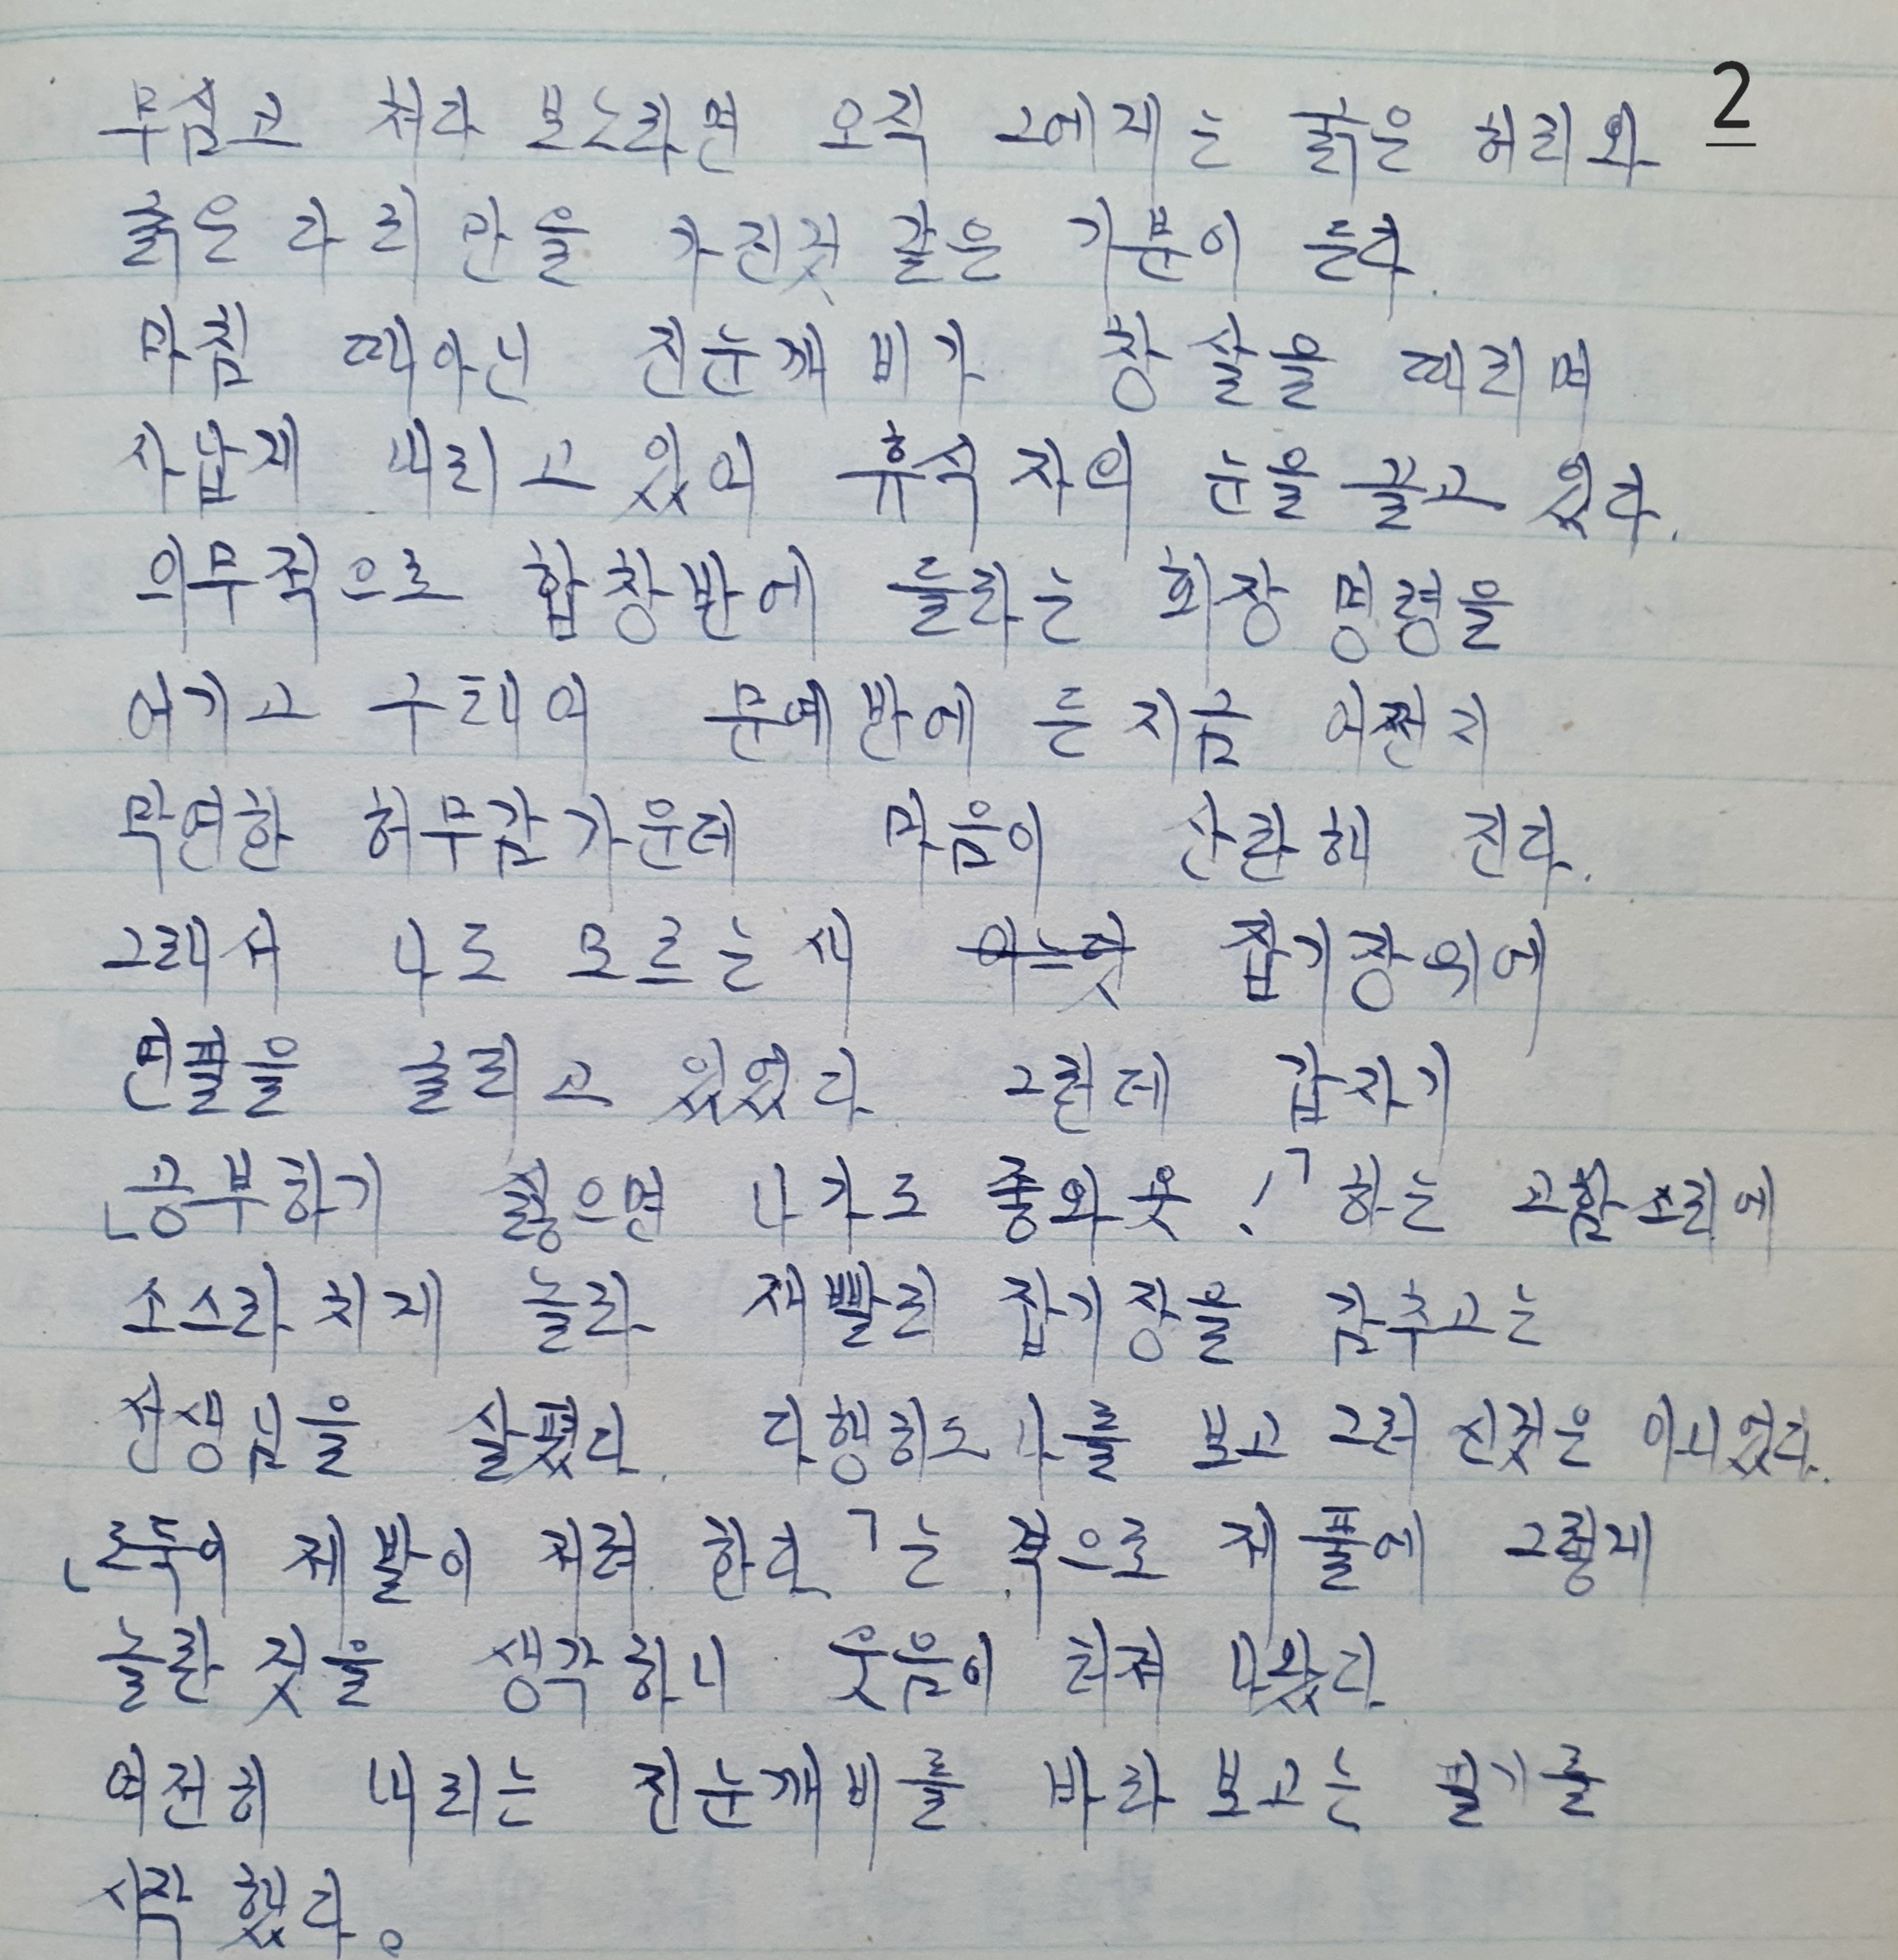 무심고 쳐다 보노라면 오직 그에게는 굵은 허리와
2
굵은 다리 만을 가진것 같은 기분이 든다.
마침 때아닌 진눈깨비가 창살을 때리며
사납게 내리고 있어 휴식자의 눈을 끌고 있다.
의무적으로 합창반에 들라는 회장 명령을
어기고 구태여 문예반에 든 지금 어쩐지
막연한 허무감 가운데 마음이 산란해 진다.
그래서 나도 모르는새 어느덧 잡기장위에
연필을 굴리고 있었다 그런데 갑자기
「공부하기 싫으면 나가도 좋와욧!」 하는 고함소리에
소스라치게 놀라 재빨리 잡기장을 감추고는
선생님을 살폈다. 다행히도 나를 보고 그러신것은 아니었다.
「도둑이 제발이 저려 한다」는 격으로 제풀에 그렇게
놀란 것을 생각하니 웃음이 터져 나왔다.
여전히 내리는 진눈깨비를 바라 보고는 필기를
시작 했다.